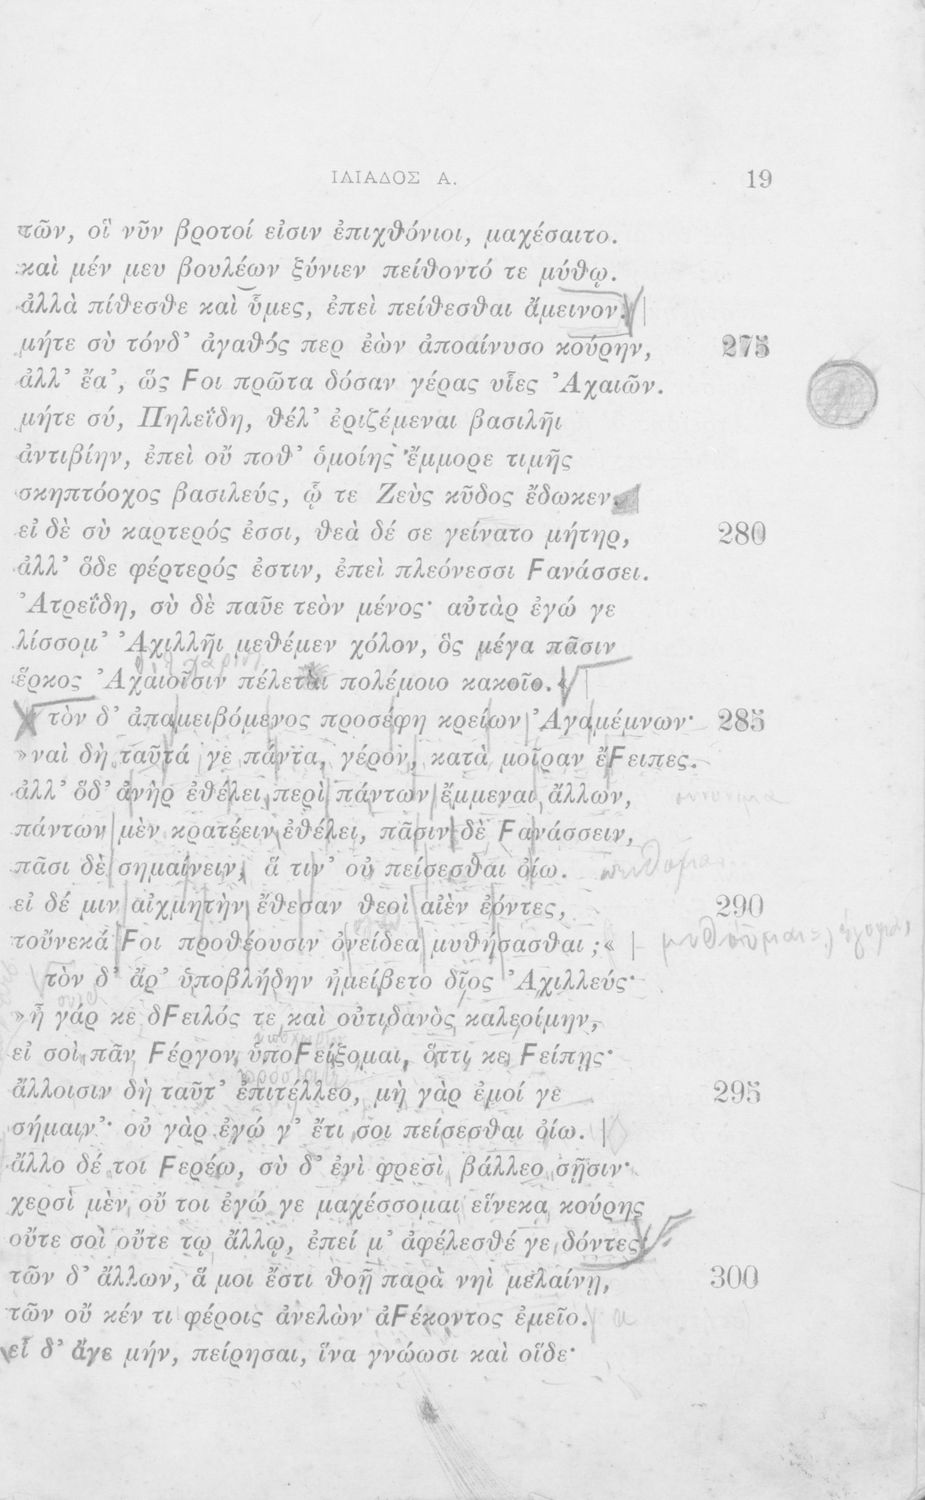 ΙΛΙΑΔΟΣ Α. 19
τῶν, οἳ νῦν βροτοί εἰσιν ἐπιχθόνιοι, μαχέσαιτο.
καὶ μέν μευ βουλέων ξύνιεν πείθοντό τε μύθῳ.
ἀλλὰ πίθεσθε καὶ ὔμες, ἐπεὶ πείθεσθαι ἄμεινον.
μήτε σὺ τόνδ’ ἀγαθός περ ἐὼν ἀποαίνυσο κούρην, 275
ἀλλ’ ἔα’, ὥς Ϝοι πρῶτα δόσαν γέρας υἷες Ἀχαιῶν.
μήτε σύ, Πηλεΐδη, θέλ’ ἐριζέμεναι βασιλῆι
ἀντιβίην, ἐπεὶ οὔ ποθ’ ὁμοίης ἔμμορε τιμῆς
σκηπτόοχος βασιλεύς, ᾧ τε Ζεὺς κῦδος ἔδωκεν.
εἰ δὲ σὺ καρτερός ἐσσι, θεὰ δέ σε γείνατο μήτηρ, 280
ἀλλ’ ὅδε φέρτερός ἐστιν, ἐπεὶ πλεόνεσσι Ϝανάσσει.
Ἀτρεΐδη, σὺ δὲ παῦε τεὸν μένος· αὐτὰρ ἐγώ γε
λίσσομ’ Ἀχιλλῆι μεθέμεν χόλον, ὃς μέγα πᾶσιν
ἕρκος Ἀχαιοῖσιν πέλεται πολέμοιο κακοῖο.
τὸν δ’ ἀπαμειβόμενος προσέφη κρείων Ἀγαμέμνων· 285
»ναὶ δὴ ταῦτά γε πάντα, γέρον, κατὰ μοῖραν ἔϜειπες.
ἀλλ’ ὅδ’ ἀνὴρ ἐθέλει περὶ πάντων ἔμμεναι ἄλλων,
πάντων μὲν κρατέειν ἐθέλει, πᾶσιν δὲ Ϝανάσσειν,
πᾶσι δὲ σημαίνειν, ἅ τιν’ οὐ πείσεσθαι ὀίω.
εἰ δέ μιν αἰχμητὴν ἔθεσαν θεοὶ αἰὲν ἐόντες, 290
τοὔνεκά Ϝοι προθέουσιν ὀνείδεα μυθήσασθαι;«
τὸν δ’ ἄρ’ ὑποβλήδην ἠμείβετο δῖος Ἀχιλλεύς·
»ἦ γάρ κε δϜειλός τε καὶ οὐτιδανὸς καλεοίμην,
εἰ σοὶ πᾶν Ϝέργον ὑποϜείξομαι, ὅττι κε Ϝείπῃς·
ἄλλοισιν δὴ ταῦτ’ ἐπιτέλλεο, μὴ γὰρ ἐμοί γε 295
σήμαιν’· οὐ γὰρ ἐγώ γ’ ἔτι σοι πείσεσθαι ὀίω.
ἄλλο δέ τοι Ϝερέω, σὺ δ’ ἐνὶ φρεσὶ βάλλεο σῇσιν·
χερσὶ μὲν οὔ τοι ἐγώ γε μαχέσσομαι εἵνεκα κούρης
οὔτε σοὶ οὔτε τῳ ἄλλῳ, ἐπεί μ’ ἀφέλεσθέ γε δόντες·
τῶν δ’ ἄλλων, ἅ μοι ἔστι θοῇ παρὰ νηὶ μελαίνῃ, 300
τῶν οὔ κέν τι φέροις ἀνελὼν ἀϜέκοντος ἐμεῖο.
εἰ δ’ ἄγε μήν, πείρησαι, ἵνα γνώωσι καὶ οἵδε·